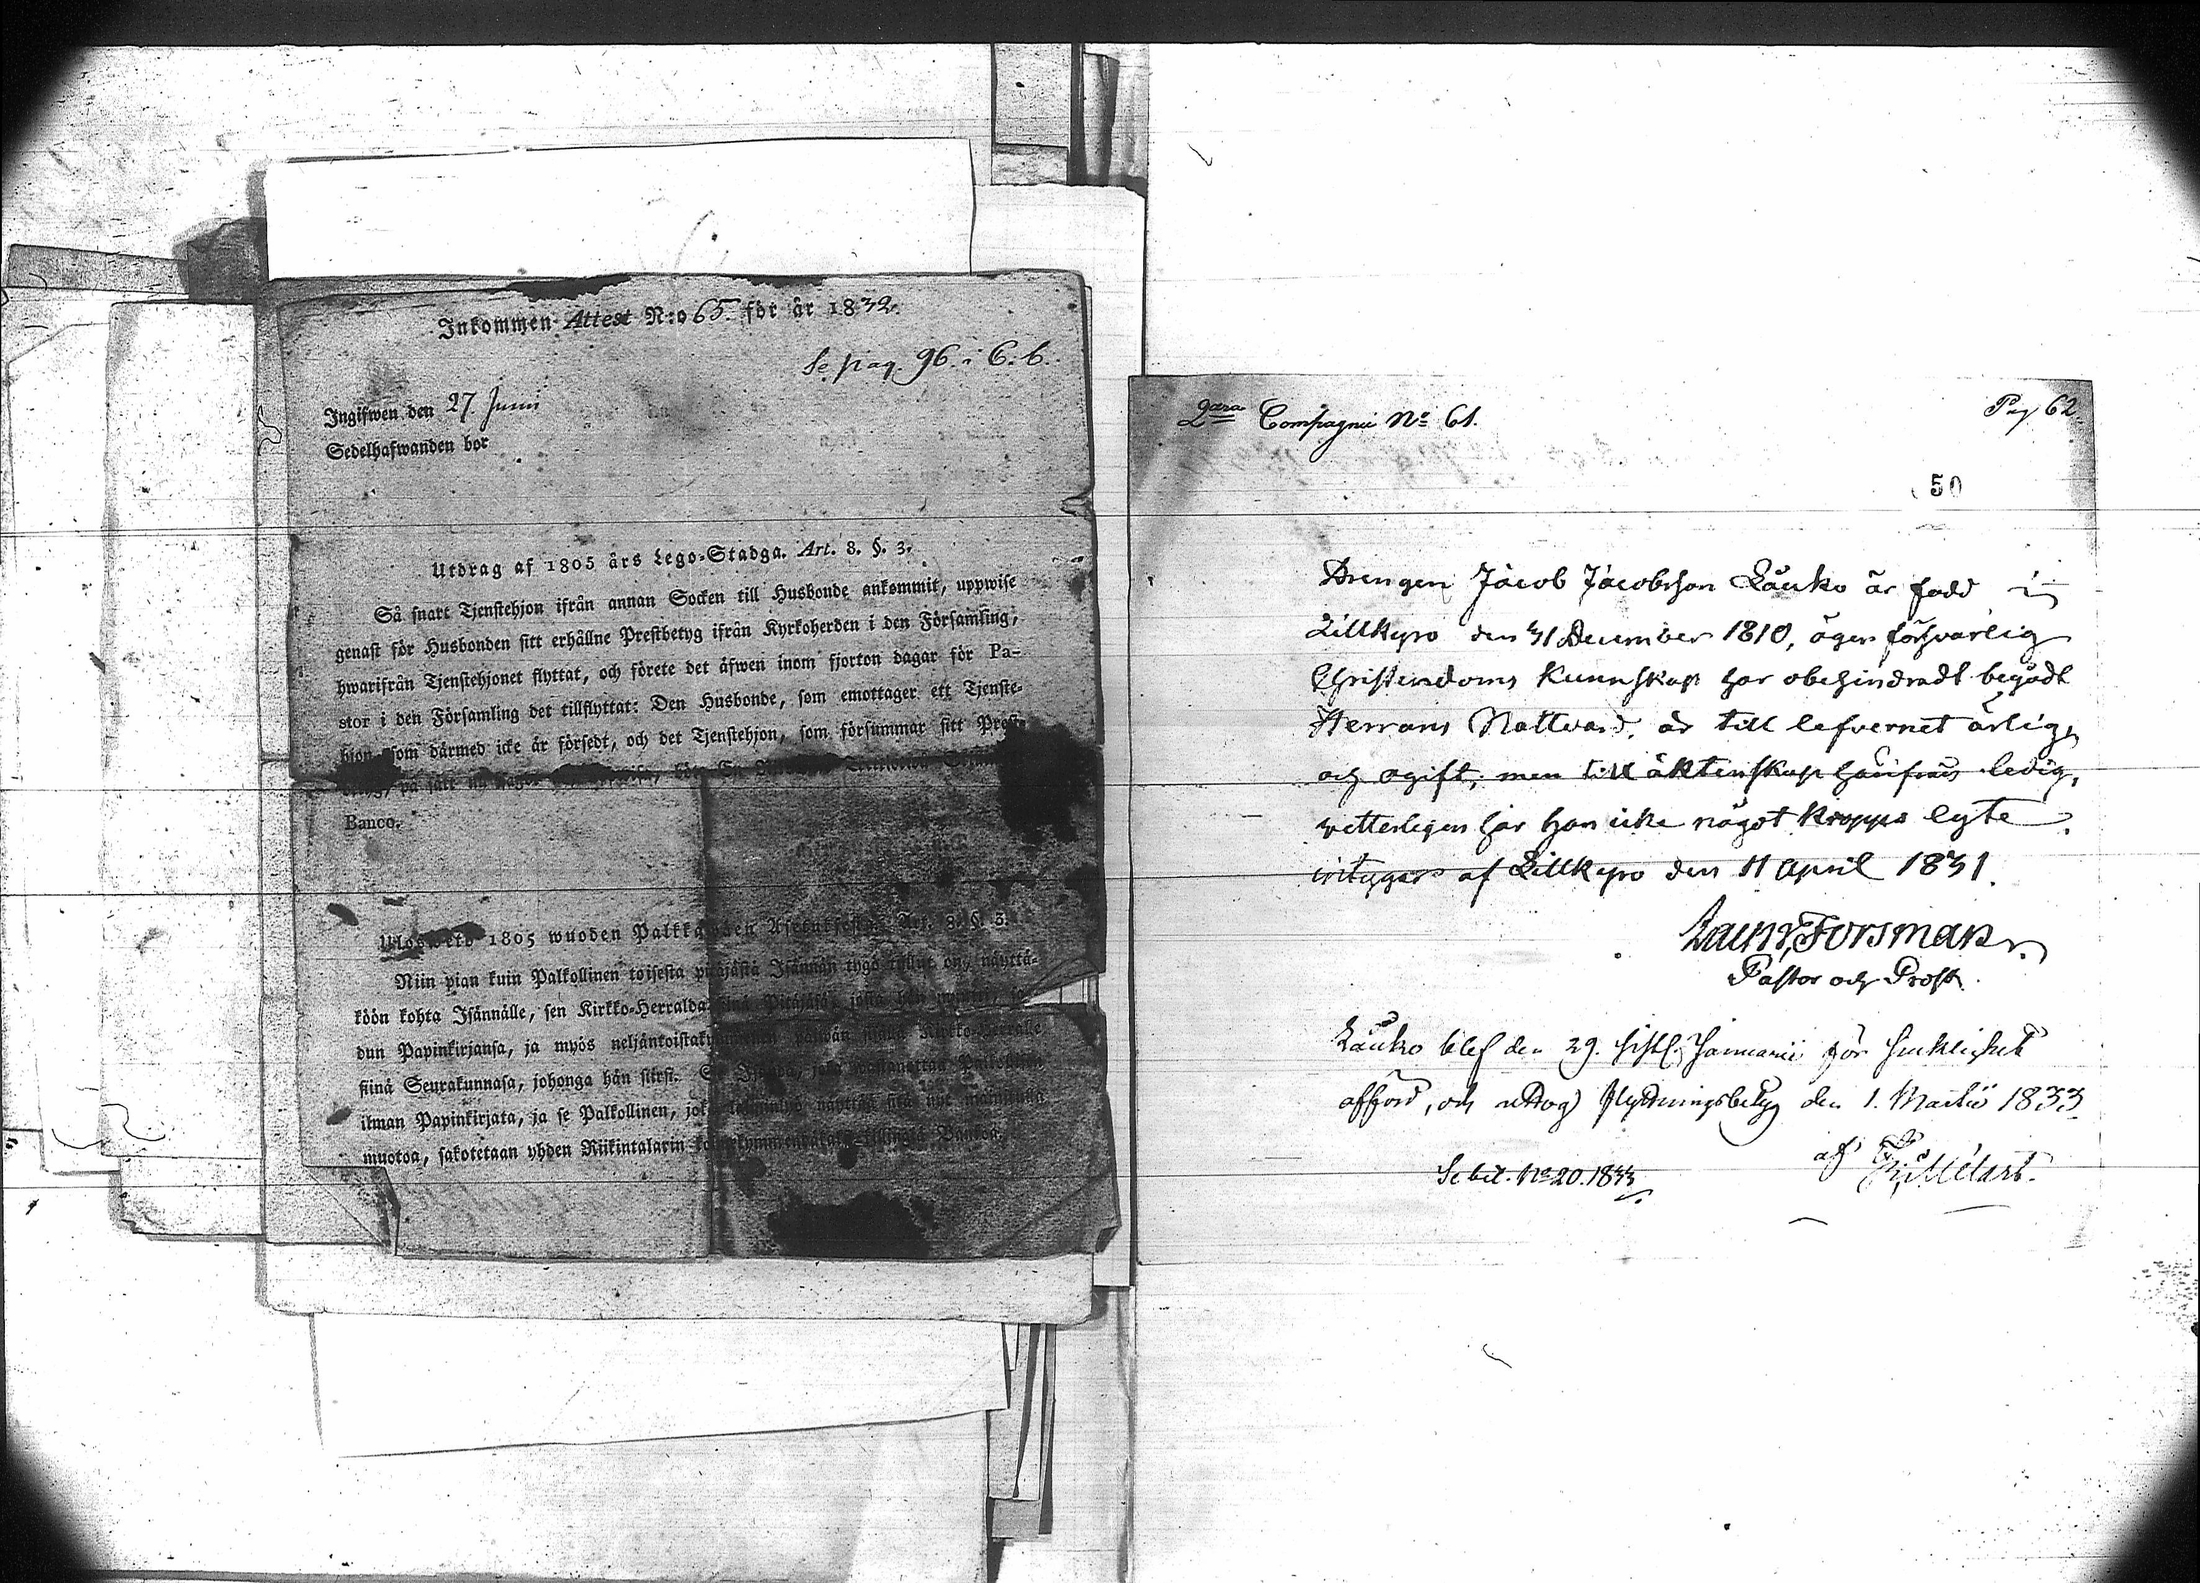 Inkommen Attest N:o 65. för år 1832.
Se pag. 96. i C. b.
Ingifwen den 27 Junii
Sedelhafwanden bor
Utdrag af 1805 års Lego-Stadga. Art. 8. §. 3.
Så snart Tjenstehjon ifrån annan Socken till Husbonde ankommit, uppwise
genast för Husbonden sitt erhållne Prestbetyg ifrån Kyrkoherden i den Församling,
hwarifrån Tjenstehjonet flyttat, och förete det äfwen inom fjorton dagar för Pa-
stor i den Församling det tillflyttat: Den Husbonde, som emottager ett Tjenste-
hjon, som därmed icke är försedt, och det Tjenstehjon, som försummar sitt Prest-
på sätt
Banco.
Ulosweto 1805 wuoden Palkka Art. 8. §. 3.
Niin pian kuin Palkollinen toisesta pitäjästä Isännän tygö tullut on, näyttä-
köön kohta Isännälle, sen Kirkko-Herralda siinä Pitäjäsä, josta hän
dun Papinkirjansa, ja myös neljäntoistaky päiwän sisään Kirkko-Herralle
siinä Seurakunnasa, johonga hän siirsi. Se Isändä, joka wastanottaa Palkollisen
ilman Papinkirjata, ja se Palkollinen, joka näyttää sitä nyt mainitulla
muotoa, sakotetaan yhden Riikintalarin Bancoa.
2dra Compagnie No 61.
Pag 62.
50
Drengen Jacob Jacobsson Lauko är född i
Lillkyro den 31 December 1810, äger försvarlig
Christendoms Kunnskap har obehindradt begådt
Herrans Nattvard, är till lefvernet ärlig,
och ogift, men till äktenskap härifrån ledig,
vetterligen har han icke något kropps lyte.
intygar af Lillkyro den 11 April 1831.
Forsman
Pastor och Prost.
Lauko blef den 29. sistl. Januarii för sjuklighet
afförd, och undfog flyttningsbetyg den 1. Martii 1833
af
Se bil. No 20. 1833